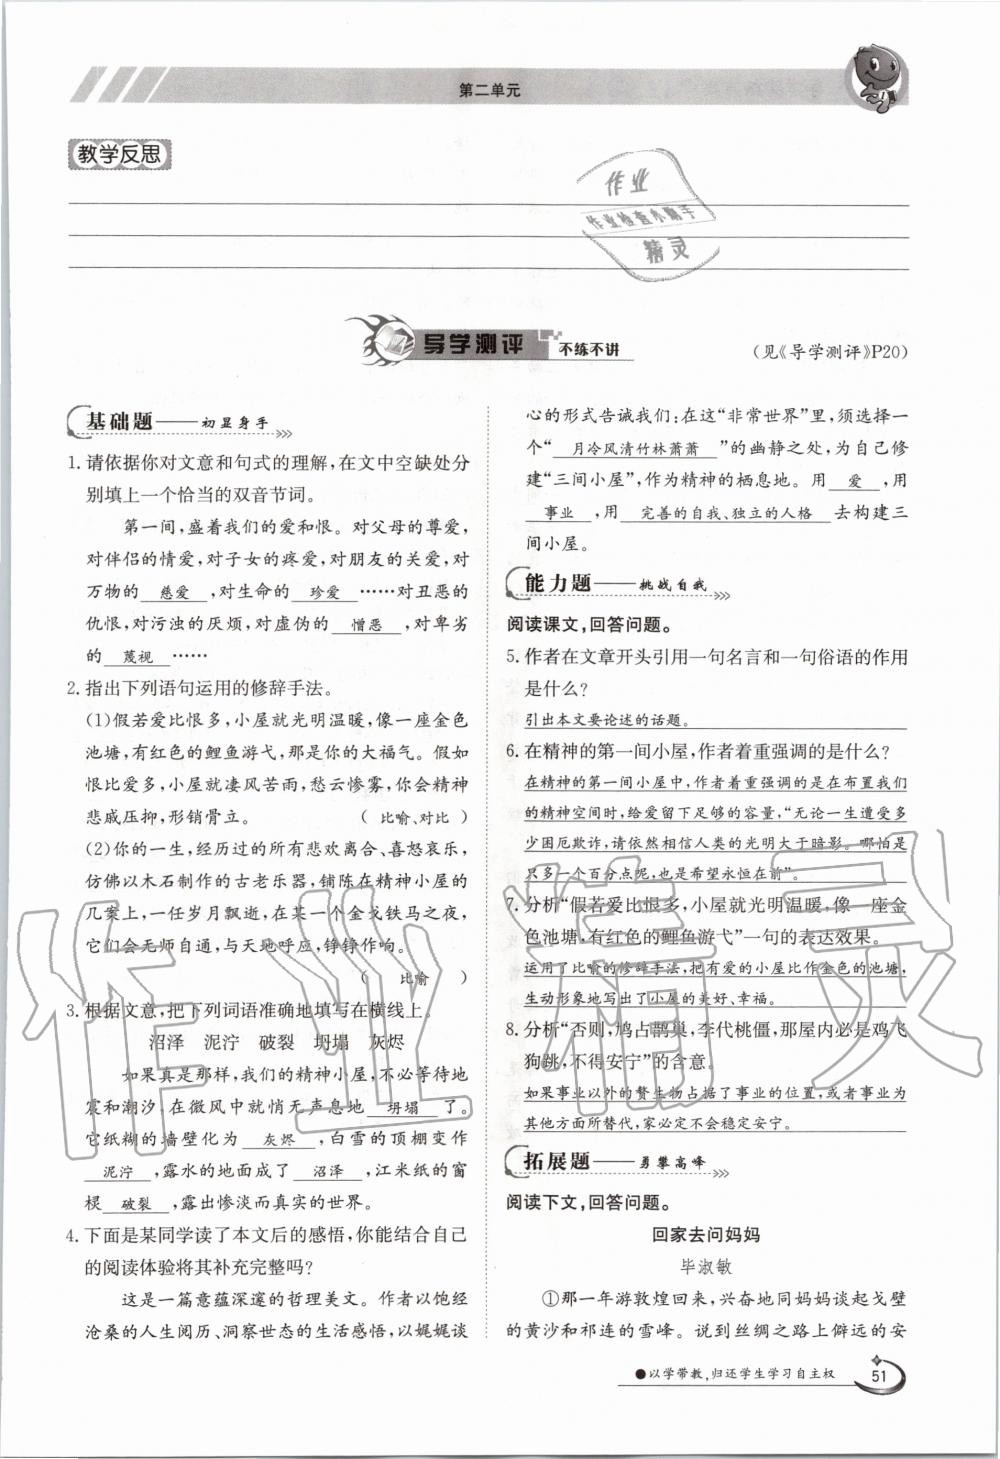 第二单元
教学反思
作业
作业检查小助手
精灵
导学测评 不练不讲
(见《导学测评》P20)
基础题——初显身手
1. 请依据你对文意和句式的理解,在文中空缺处分
别填上一个恰当的双音节词。
第一间,盛着我们的爱和恨。对父母的尊爱,
对伴侣的情爱,对子女的疼爱,对朋友的关爱,对
万物的 慈爱 ,对生命的 珍爱 ……对丑恶的
仇恨,对污浊的厌烦,对虚伪的 憎恶 ,对卑劣
的 蔑视 ……
2. 指出下列语句运用的修辞手法。
(1)假若爱比恨多,小屋就光明温暖,像一座金色
池塘,有红色的鲤鱼游弋,那是你的大福气。假如
恨比爱多,小屋就凄风苦雨,愁云惨雾,你会精神
悲戚压抑,形销骨立。 ( 比喻、对比 )
(2)你的一生,经历过的所有悲欢离合、喜怒哀乐,
仿佛以木石制作的古老乐器,铺陈在精神小屋的
几案上,一任岁月飘逝,在某一个金戈铁马之夜,
它们会无师自通,与天地呼应,铮铮作响。
( 比喻 )
3. 根据文意,把下列词语准确地填写在横线上。
沼泽 泥泞 破裂 坍塌 灰烬
如果真是那样,我们的精神小屋,不必等待地
震和潮汐,在微风中就悄无声息地 坍塌 了。
它纸糊的墙壁化为 灰烬 ,白雪的顶棚变作
泥泞 ,露水的地面成了 沼泽 ,江米纸的窗
棂 破裂 ,露出惨淡而真实的世界。
4. 下面是某同学读了本文后的感悟,你能结合自己
的阅读体验将其补充完整吗?
这是一篇意蕴深邃的哲理美文。作者以饱经
沧桑的人生阅历、洞察世态的生活感悟,以娓娓谈
心的形式告诫我们:在这“非常世界”里,须选择一
个“ 月冷风清竹林萧萧 ”的幽静之处,为自己修
建“三间小屋”,作为精神的栖息地。用 爱 ,用
事业 ,用 完善的自我、独立的人格 去构建三
间小屋。
能力题——挑战自我
阅读课文,回答问题。
5. 作者在文章开头引用一句名言和一句俗语的作用
是什么?
引出本文要论述的话题。
6. 在精神的第一间小屋,作者着重强调的是什么?
在精神的第一间小屋中,作者着重强调的是在布置我们
的精神空间时,给爱留下足够的容量,“无论一生遭受多
少困厄欺诈,请依然相信人类的光明大于暗影。哪怕是
只多一个百分点呢,也是希望永恒在前”。
7. 分析“假若爱比恨多,小屋就光明温暖,像一座金
色池塘,有红色的鲤鱼游弋”一句的表达效果。
运用了比喻的修辞手法,把有爱的小屋比作金色的池塘,
生动形象地写出了小屋的美好、幸福。
8. 分析“否则,鸠占鹊巢,李代桃僵,那屋内必是鸡飞
狗跳,不得安宁”的含意。
如果事业以外的赘生物占据了事业的位置,或者事业为
其他方面所替代,家必定不会稳定安宁。
拓展题——勇攀高峰
阅读下文,回答问题。
回家去问妈妈
毕淑敏
①那一年游敦煌回来,兴奋地同妈妈谈起戈壁
的黄沙和祁连的雪峰。说到丝绸之路上僻远的安
●以学带教,归还学生学习自主权
51
作业精灵